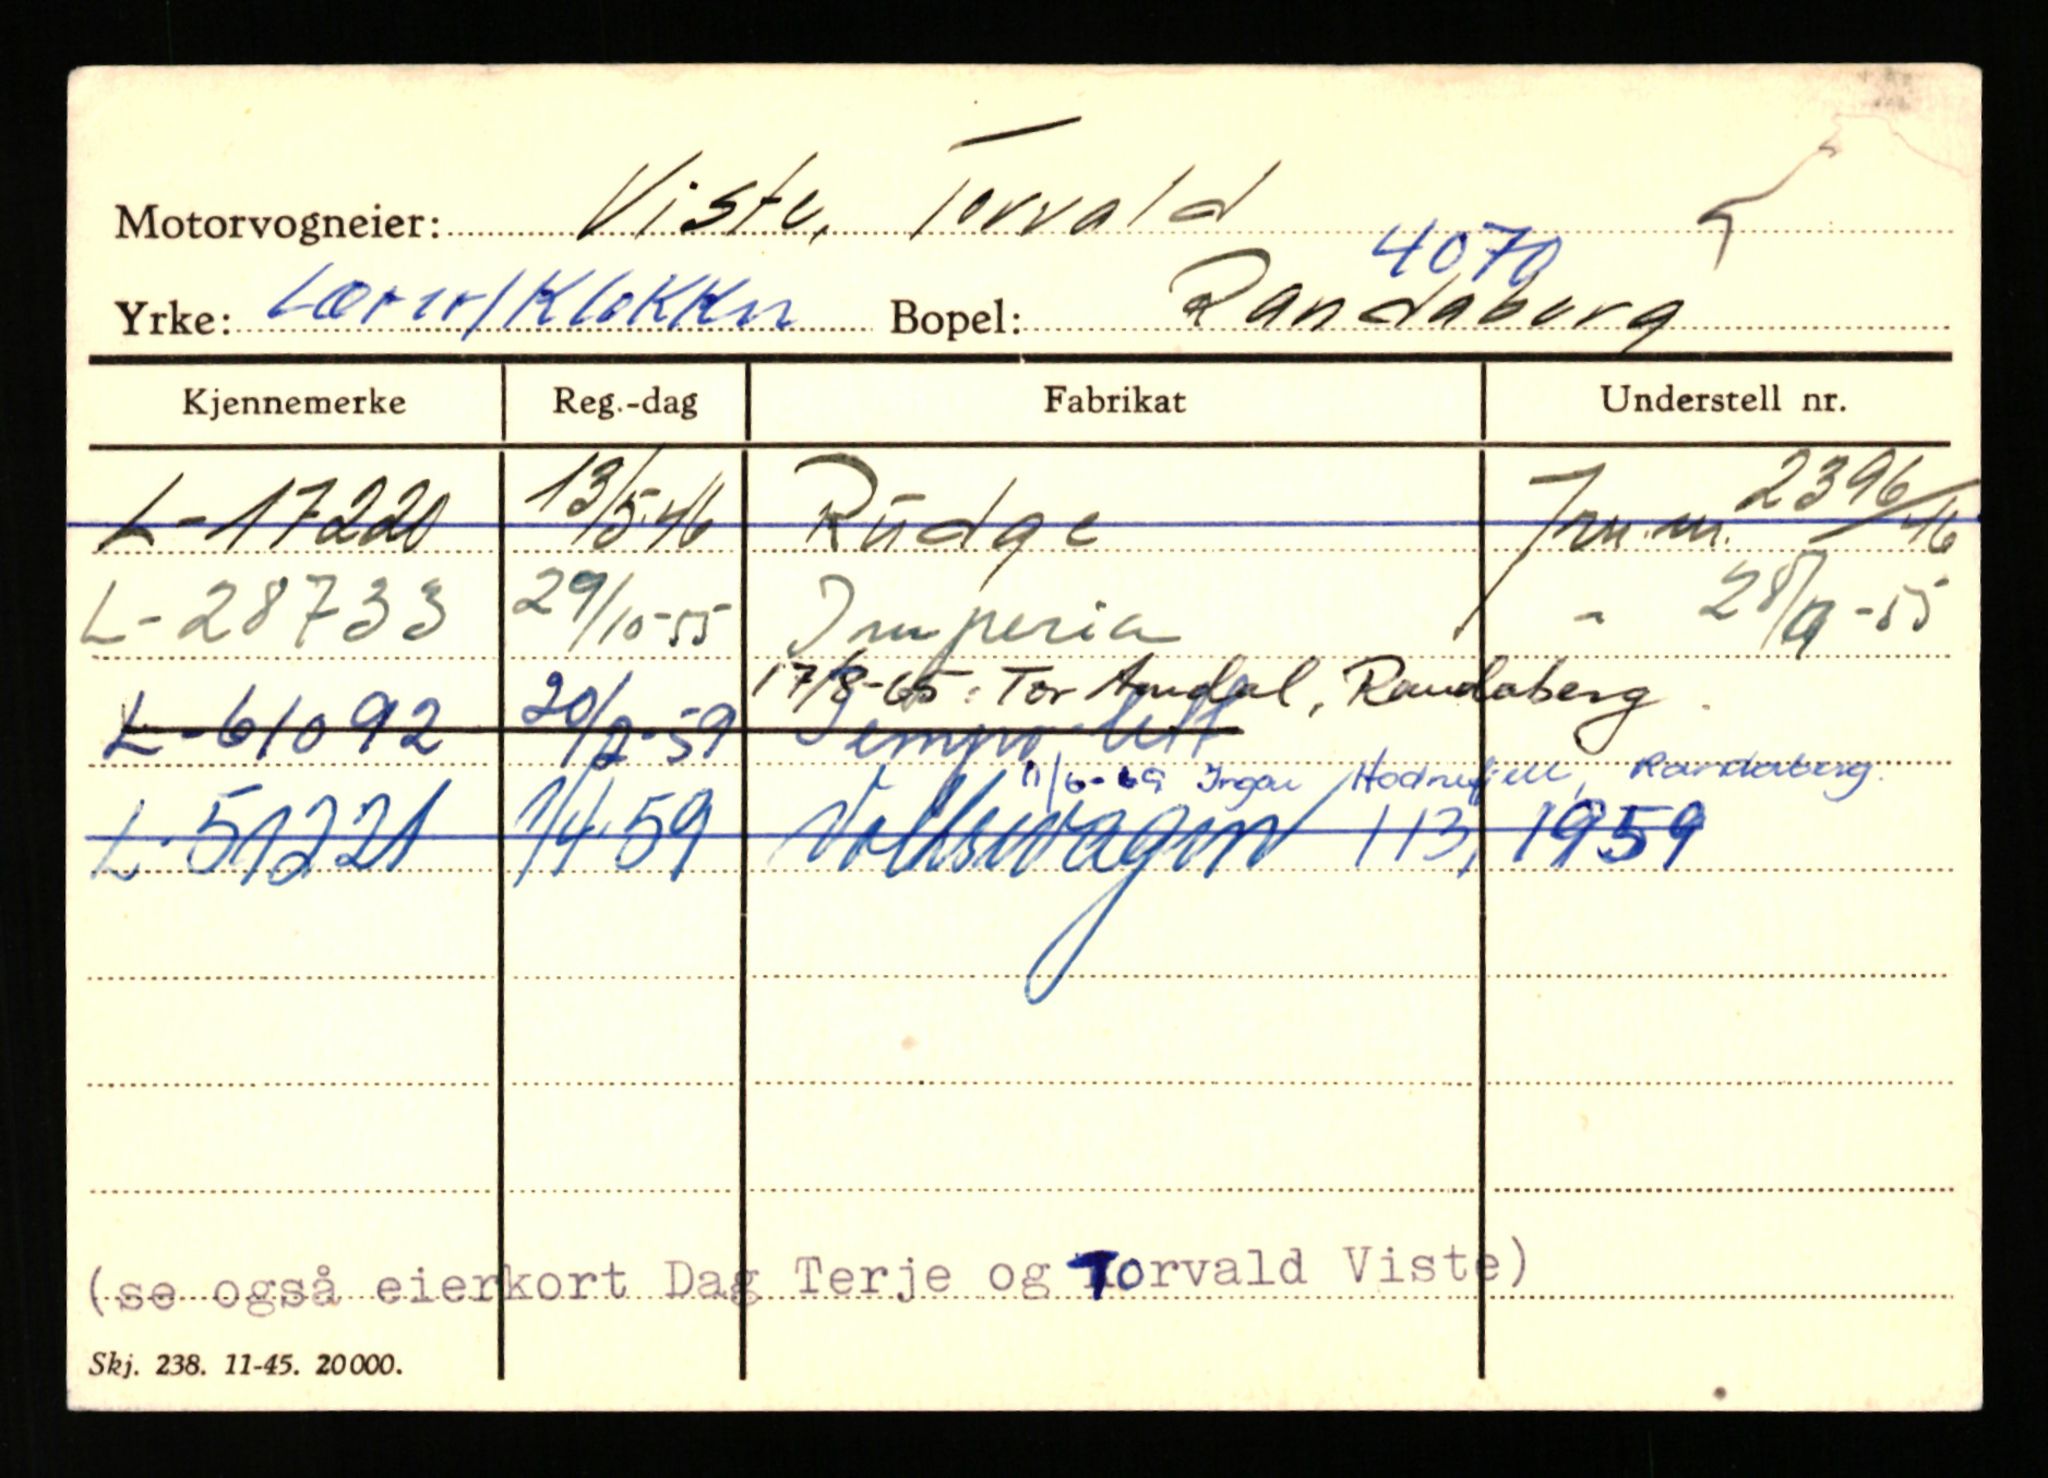 Motorvogneier: Viste, Torvald
4070
Yrke: Lærer/Klokker Bopel: Randaberg
Kjennemerke Reg.-dag Fabrikat Understell nr.
L-17220 13/5-46 Rudge 2396/46
L-28733 29/10-55 Imperia " 28/9-55
17/8-65: Tor Amdal, Randaberg.
L-61092 20/2-59 Tempo lett
11/6-69 Ingar Hodnefjell, Randaberg.
L-51221 1/4-59 Volkswagen 113, 1959
(se også eierkort Dag Terje og Torvald Viste)
Skj. 238. 11-45. 20000.